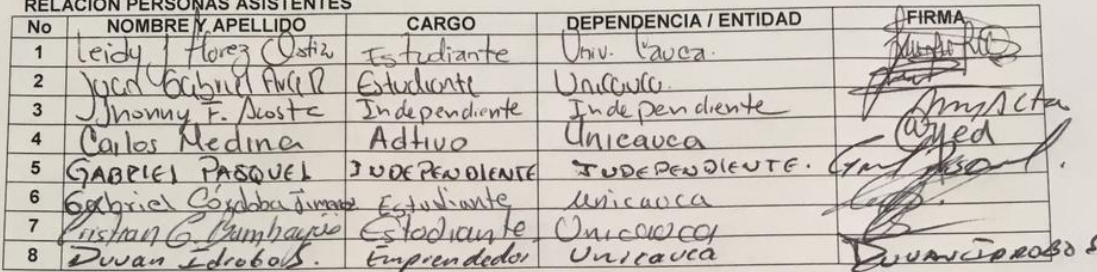 RELACIÓN PERSONAS ASISTENTES
No NOMBRE Y APELLIDO CARGO DEPENDENCIA / ENTIDAD FIRMA
1 Leidy J Florez Ostiz Estudiante Univ. Cauca.
2 Juan Gabriel Estudiante Unicauca.
3 Jhonny F. Acosta Independiente Independiente
4 Carlos Medina Adtivo Unicauca
5 GABRIEL PASQUEL INDEPENDIENTE INDEPENDIENTE.
6 Gabriel Córdoba Jimenez Estudiante unicauca
7 Cristian G. Estudiante Unicauca
8 Duvan Idrobo S. Emprendedor Unicauca DUVAN IDROBO S